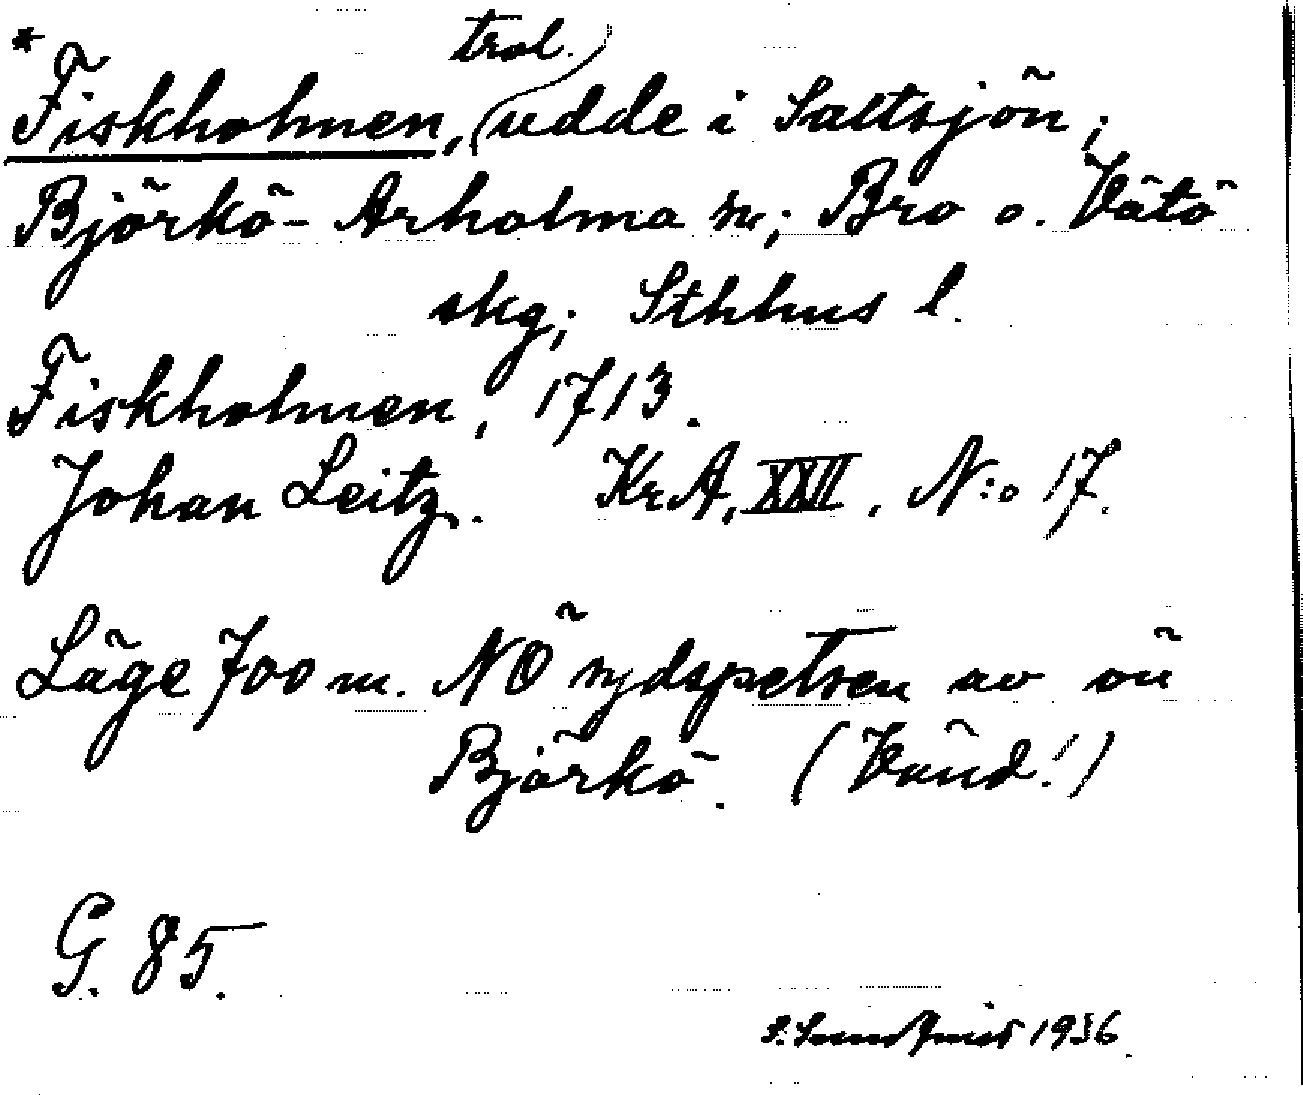 *
trol.
Fiskholmen, udde i Saltsjön;
Björkö-Arholma sn; Bro o. Vätö
skg; Sthlms l.
Fiskholmen, 1713.
Johan Leitz. KrA, XXII, N:o 17.
Läge 700 m. NÖ sydspetsen av ön
Björkö. (Vänd!)
G. 85.
S. Sundquist 1936.